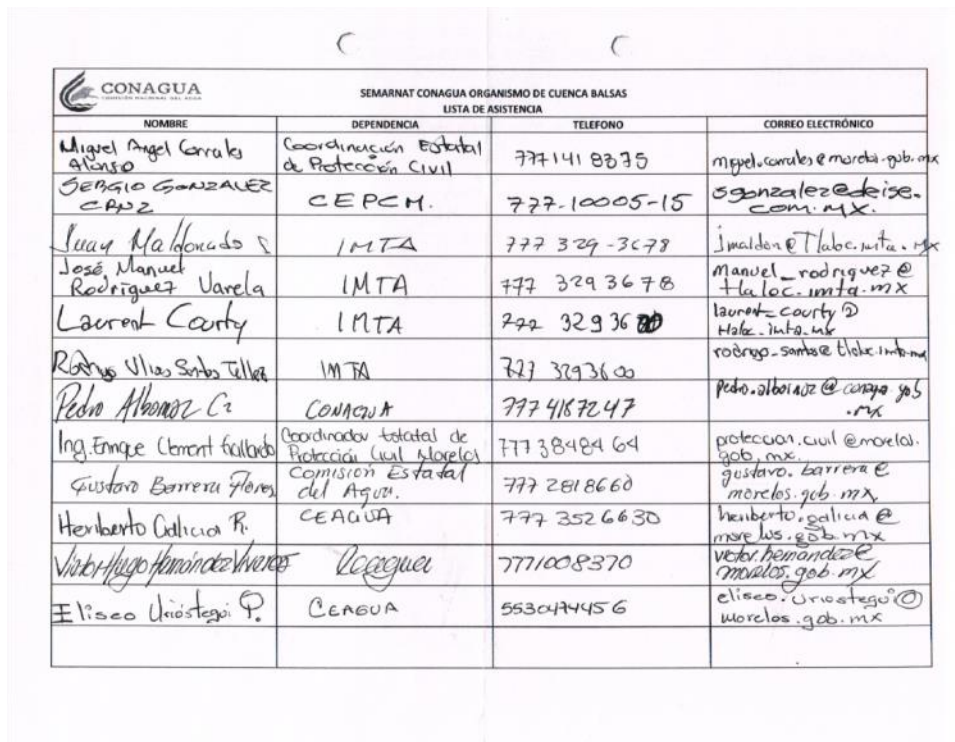 CONAGUA
COMISIÓN NACIONAL DEL AGUA
SEMARNAT CONAGUA ORGANISMO DE CUENCA BALSAS
LISTA DE ASISTENCIA
NOMBRE DEPENDENCIA TELEFONO CORREO ELECTRÓNICO
Miguel Angel Corrales Coordinación Estatal
Alonso de Protección Civil 777 141 8375 miguel.corrales@morelos.gob.mx
SERGIO GONZALEZ sgonzalez@deise.
CRUZ CEPCM. 777-10005-15 com.mx.
Juan Maldonado S IMTA 777 329-3678 jmaldon@Tlaloc.imta.mx
José Manuel manuel_rodriguez@
Rodríguez Varela IMTA 777 3293678 tlaloc.imta.mx
Laurent Courty IMTA 777 32936 laurent_courty@
tlaloc.imta.mx
Santos Tellez IMTA 777 3293600 rodrigo_santos@tlaloc.imta.mx
Pedro Albornoz Cz CONAGUA 777 4187247 pedro.albornoz@conagua.gob
.mx
Ing. Enrique Clement Gallardo Coordinador Estatal de 777 38484 64 proteccion.civil@morelos.
Protección Civil Morelos gob.mx.
Gustavo Barrera Flores Comisión Estatal 777 2818660 gustavo.barrera@
del Agua. morelos.gob.mx
Heriberto Galicia R. CEAGUA 777 3526630 heriberto.galicia@
morelos.gob.mx
Victor Hugo Hernández Viveros Ceagua 7771008370 victor.hernandez@
morelos.gob.mx
Eliseo Urióstegui P. CEAGUA 5530474456 eliseo.uriostegui@
morelos.gob.mx